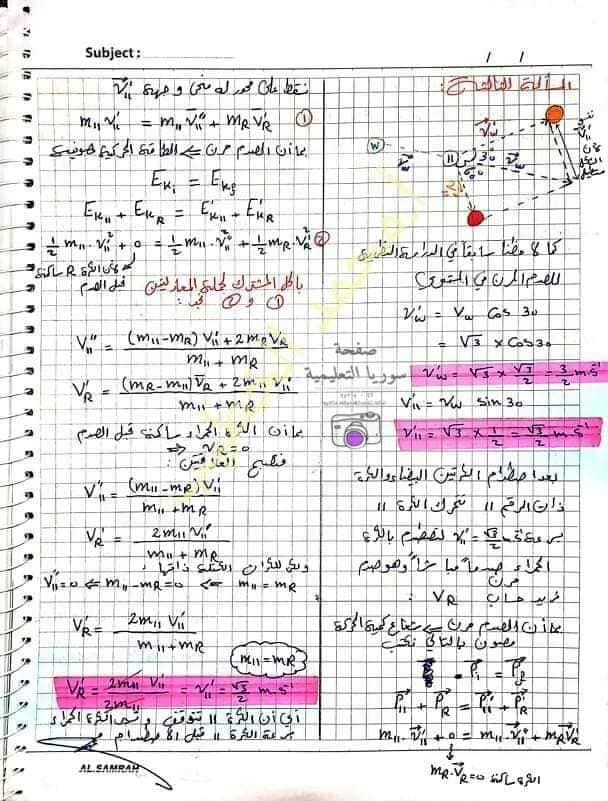 Subject :
/ /
المسألة الثالثة:
W
11
30
60
كما لاحظنا سابقاً في الدراسة النظرية
للصدم المرن في المستوي
V'w = Vw Cos 30
= √3 × Cos30
V'w = √3 × √3/2 = 3/2 m.s⁻¹
V'11 = Vw sin 30
V'11 = √3 × 1/2 = √3/2 m.s⁻¹
بعد اصطدام الكرتين البيضاء والكرة
ذات الرقم 11 تتحرك الكرة 11
بسرعة V'11 = √3/2 لتصطدم بالكرة
الحمراء صدماً مباشراً وهو صدم
مرن
نريد حساب V'R :
بما أن الصدم مرن شعاع كمية الحركة
مصون بالتالي نكتب
P⃗i = P⃗f
P⃗'11 + P⃗R = P⃗''11 + P⃗'R
m11.V⃗'11 + 0 = m11.V⃗''11 + mR V⃗'R
mR.V⃗R = 0 الكرة ساكنة
نسقط على محور له منحى وجهة V⃗'11
m11 V'11 = m11 V''11 + mR V'R ①
بما أن الصدم مرن => الطاقة الحركية مصونة
EKi = EKf
EK11 + EKR = E'K11 + E'KR
1/2 m11.V'11² + 0 = 1/2 m11.V''11² + 1/2 mR.V'R² ②
لأن الكرة R ساكنة
قبل الصدم
بالحل المشترك لجملة المعادلتين
① و ② نجد :
V''11 = (m11-mR) V'11 + 2mR VR / m11 + mR
V'R = (mR-m11) VR + 2m11 V'11 / m11 + mR
بما أن الكرة الحمراء ساكنة قبل الصدم
=> VR = 0
فتصبح العلاقتين :
V''11 = (m11-mR) V'11 / m11 + mR
V'R = 2m11 V'11 / m11 + mR
ولأن للكرات الكتلة ذاتها :
V''11 = 0 <= m11-mR=0 <= m11 = mR
V'R = 2m11 V'11 / m11 + mR
m11 = mR
V'R = 2m11 V'11 / 2m11 = V'11 = √3/2 m.s⁻¹
أي أن الكرة 11 تتوقف و تسير الكرة الحمراء
بسرعة الكرة 11 قبل الاصطدام
صفحة
سوريا التعليمية
AL SAMRAH